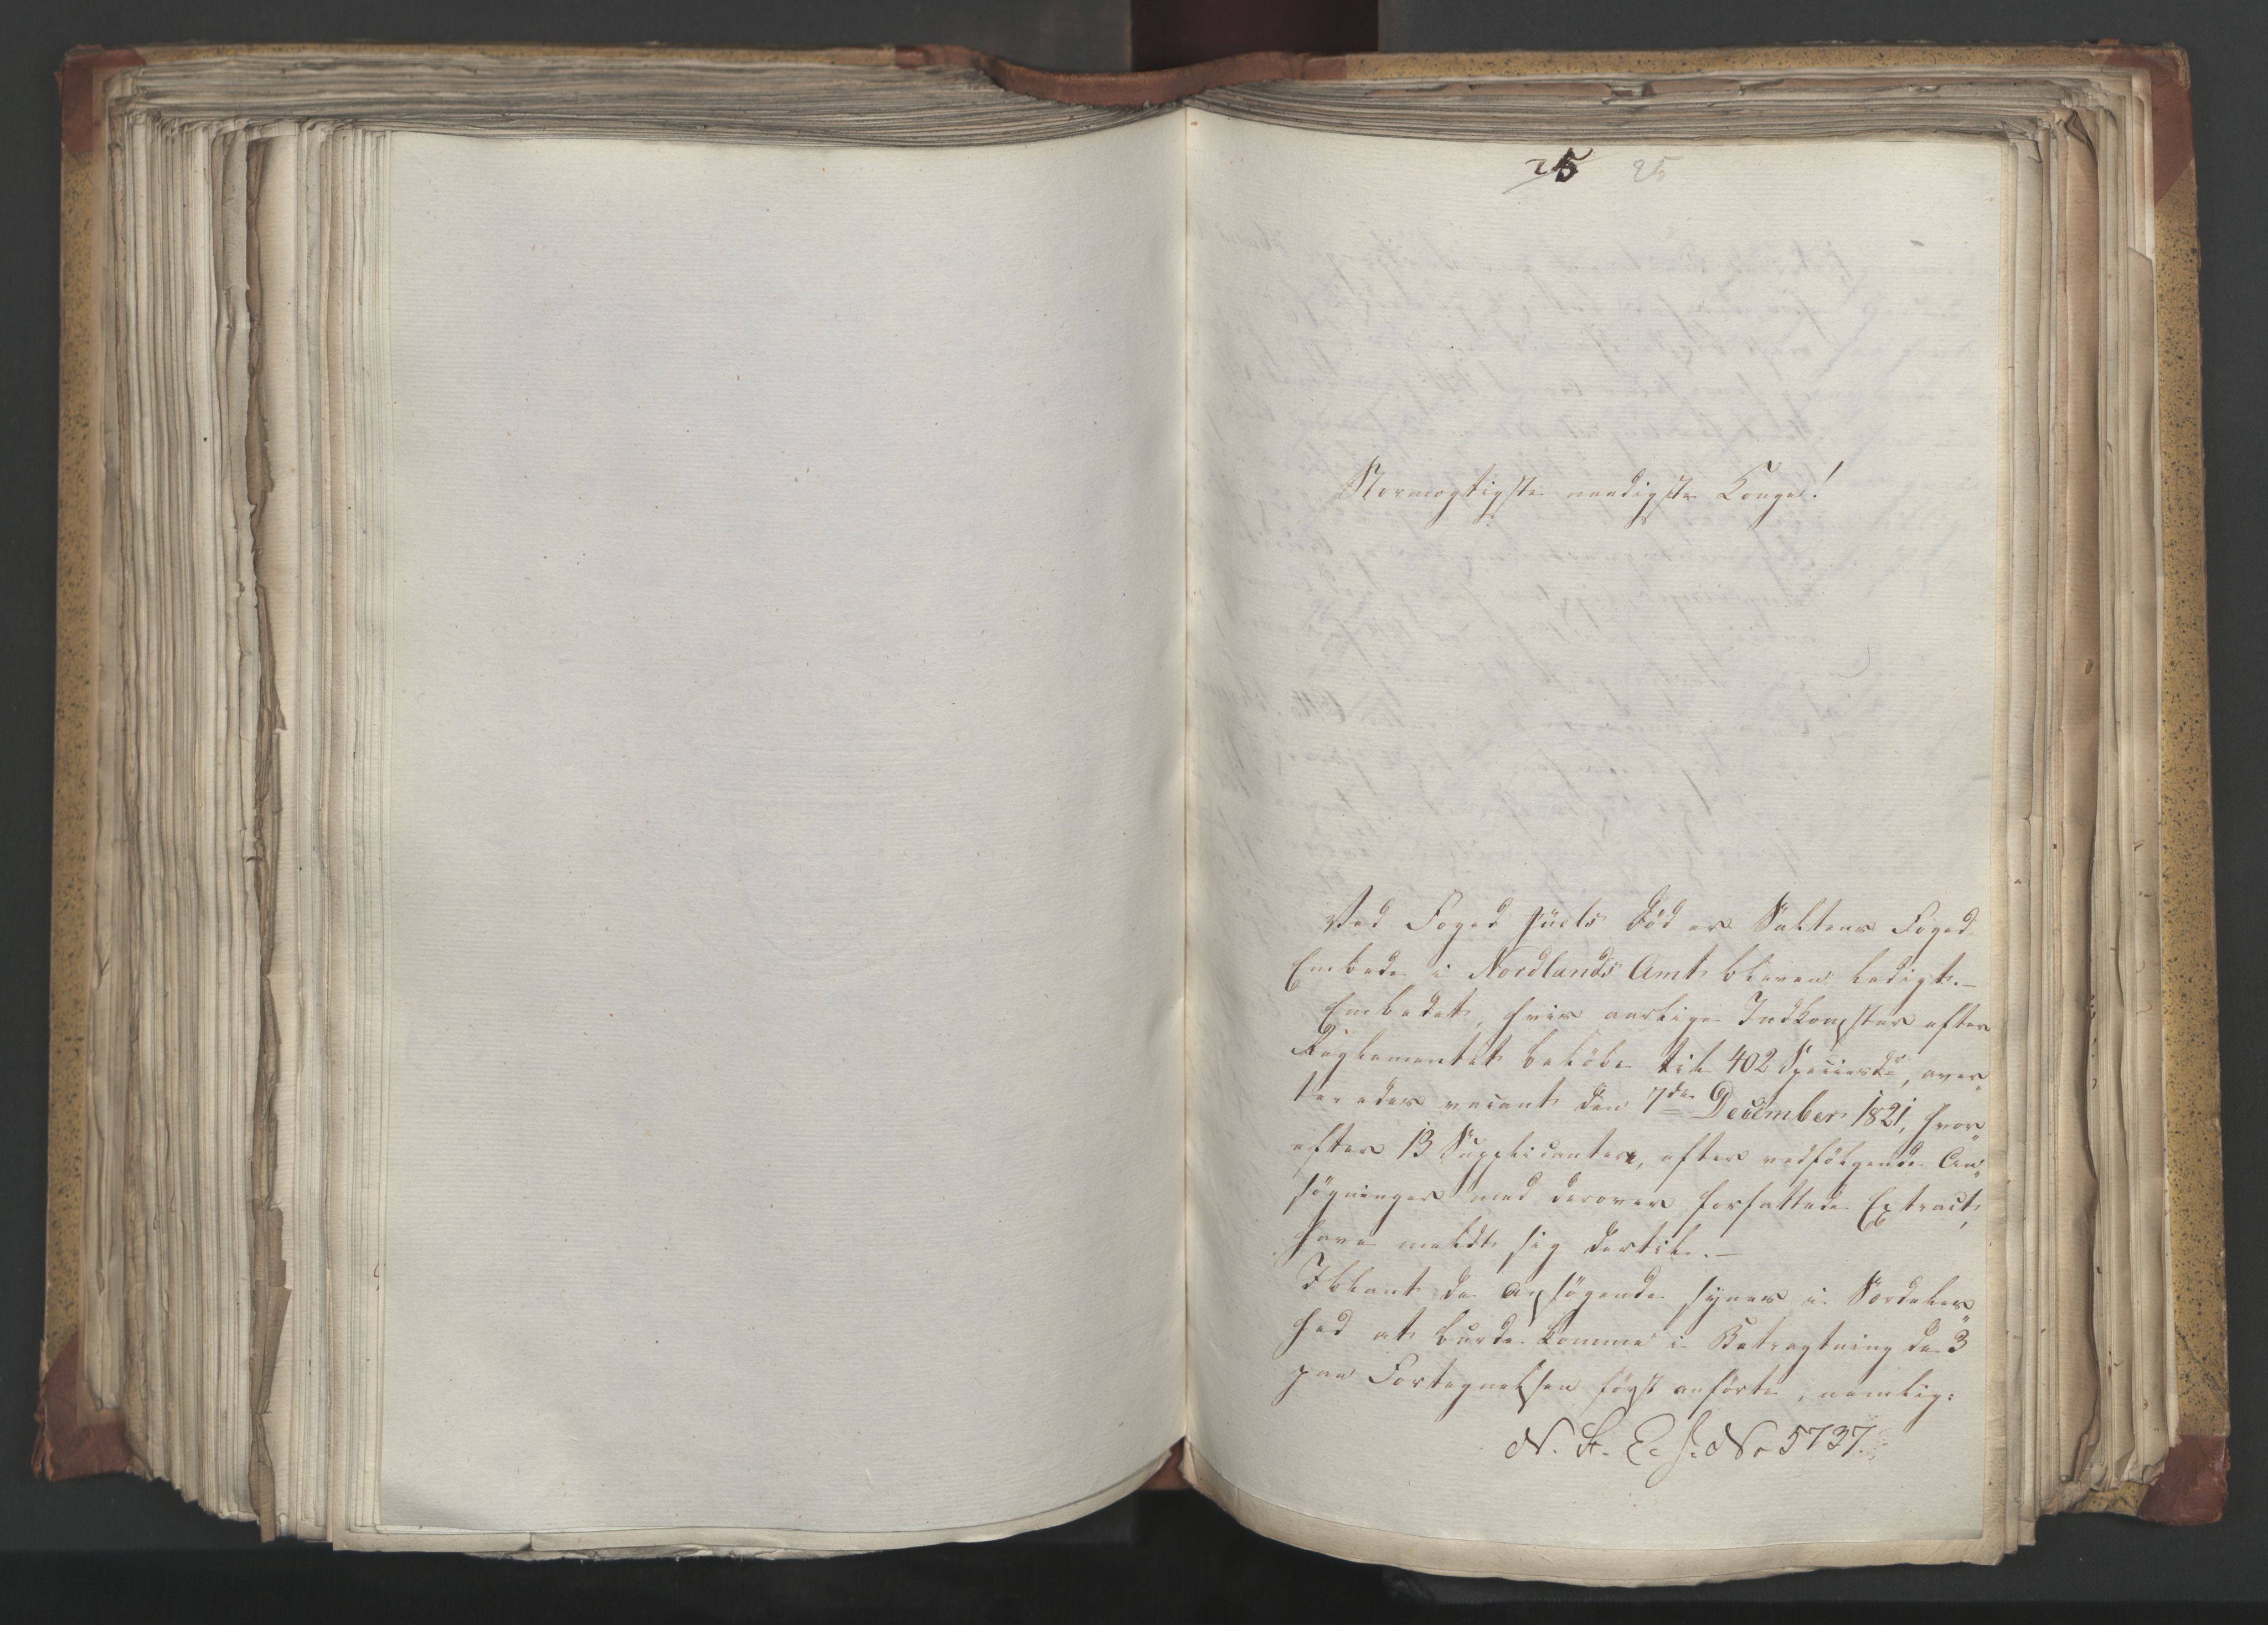 25 25
Stormægtigste naadigste Konge!
Ved Foged Juels Död er Saltens Foged
Embede i Nordlands Amt bleven ledigt.-
Embedet, hvis aarlige Indkomster efter
Reglementet belöbe til 402 Speciesdr, aver„
teredes vacant den 7de December 1821, hvor„
efter 13 Supplicantere, efter vedfölgende An„
sögninger med derover forfattede Extract,
have meldt sig dertil.-
Iblant de Ansögende synes i Særdeles„
hed at burde komme i Betragtning de 3
paa Fortegnelsen först anförte, nemlig:
N. St. E. J. No 5737.